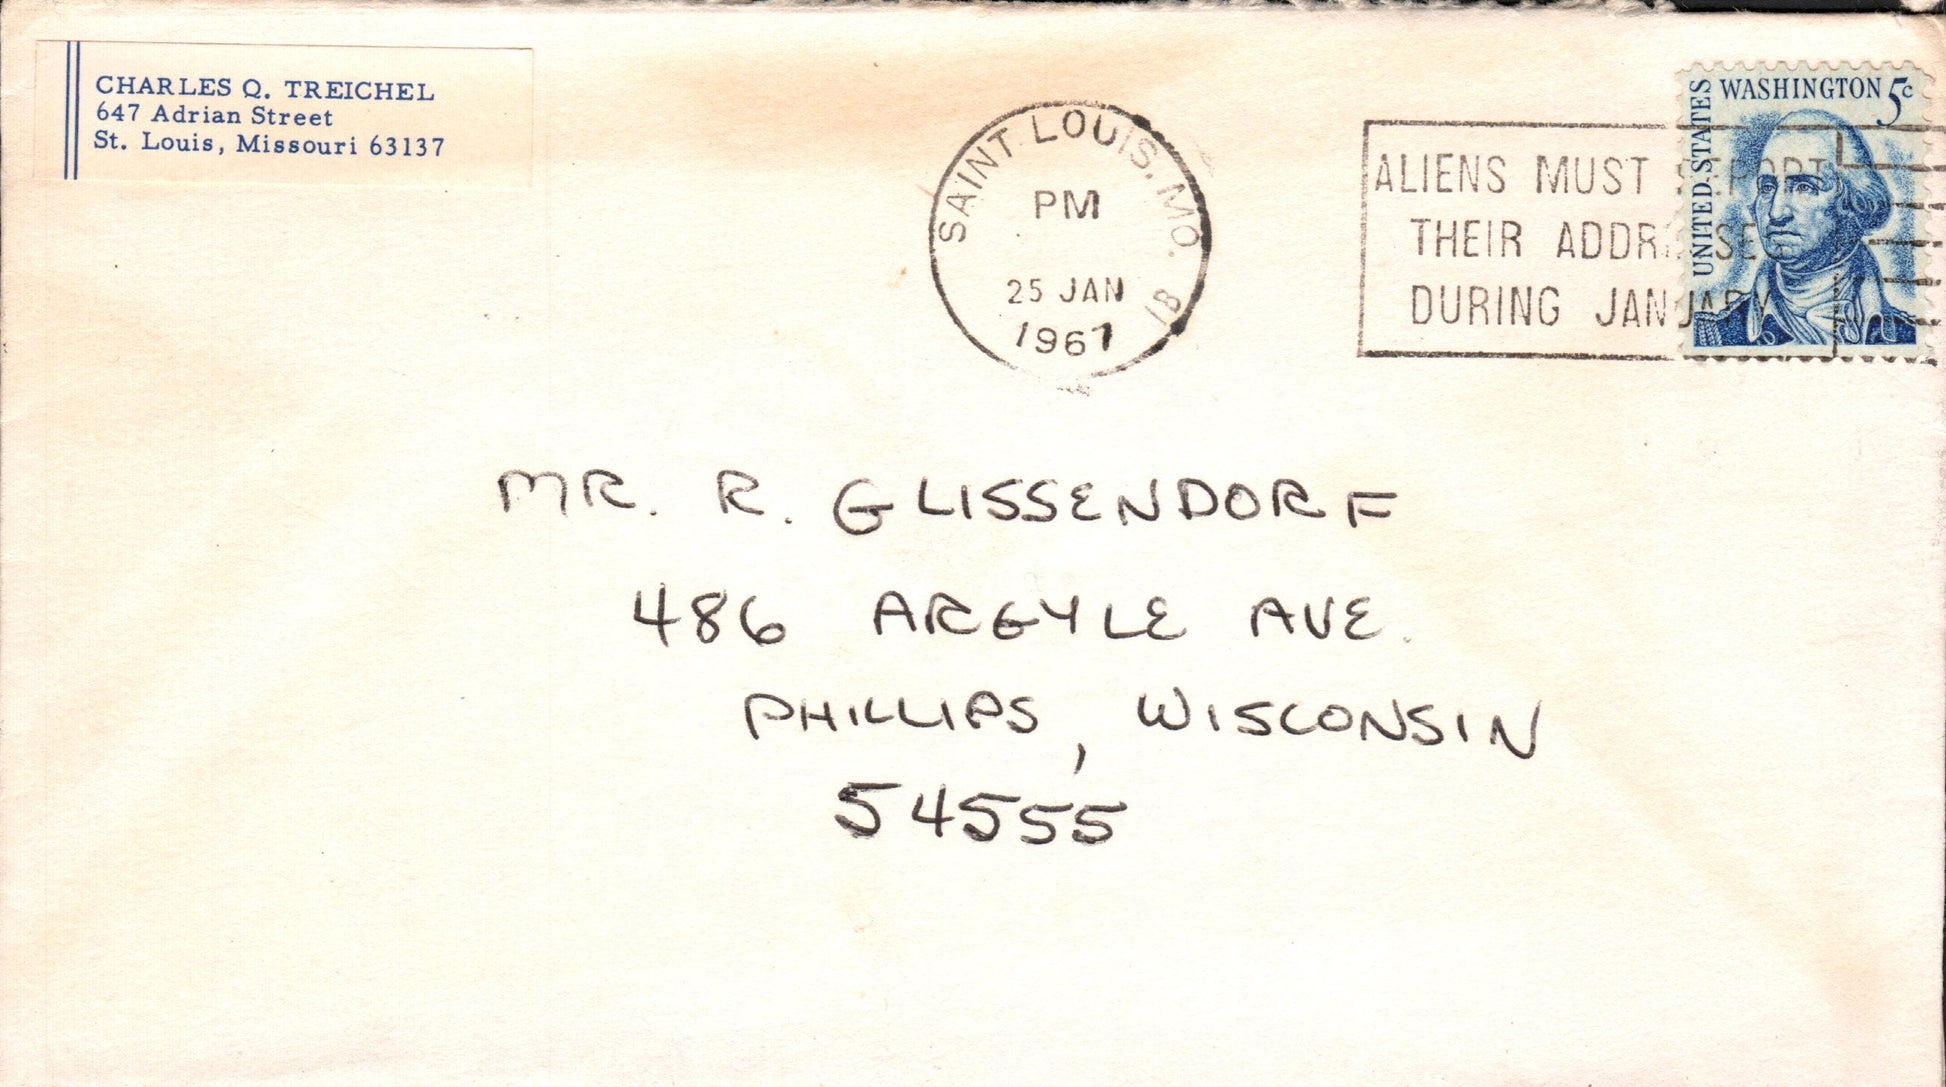 CHARLES Q. TREICHEL
647 Adrian Street
St. Louis, Missouri 63137
SAINT LOUIS, MO.
PM
25 JAN
1967
1B
ALIENS MUST REPORT
THEIR ADDRESSES
DURING JANUARY
UNITED STATES
WASHINGTON 5c
MR. R. GLISSENDORF
486 ARGYLE AVE.
PHILLIPS, WISCONSIN
54555